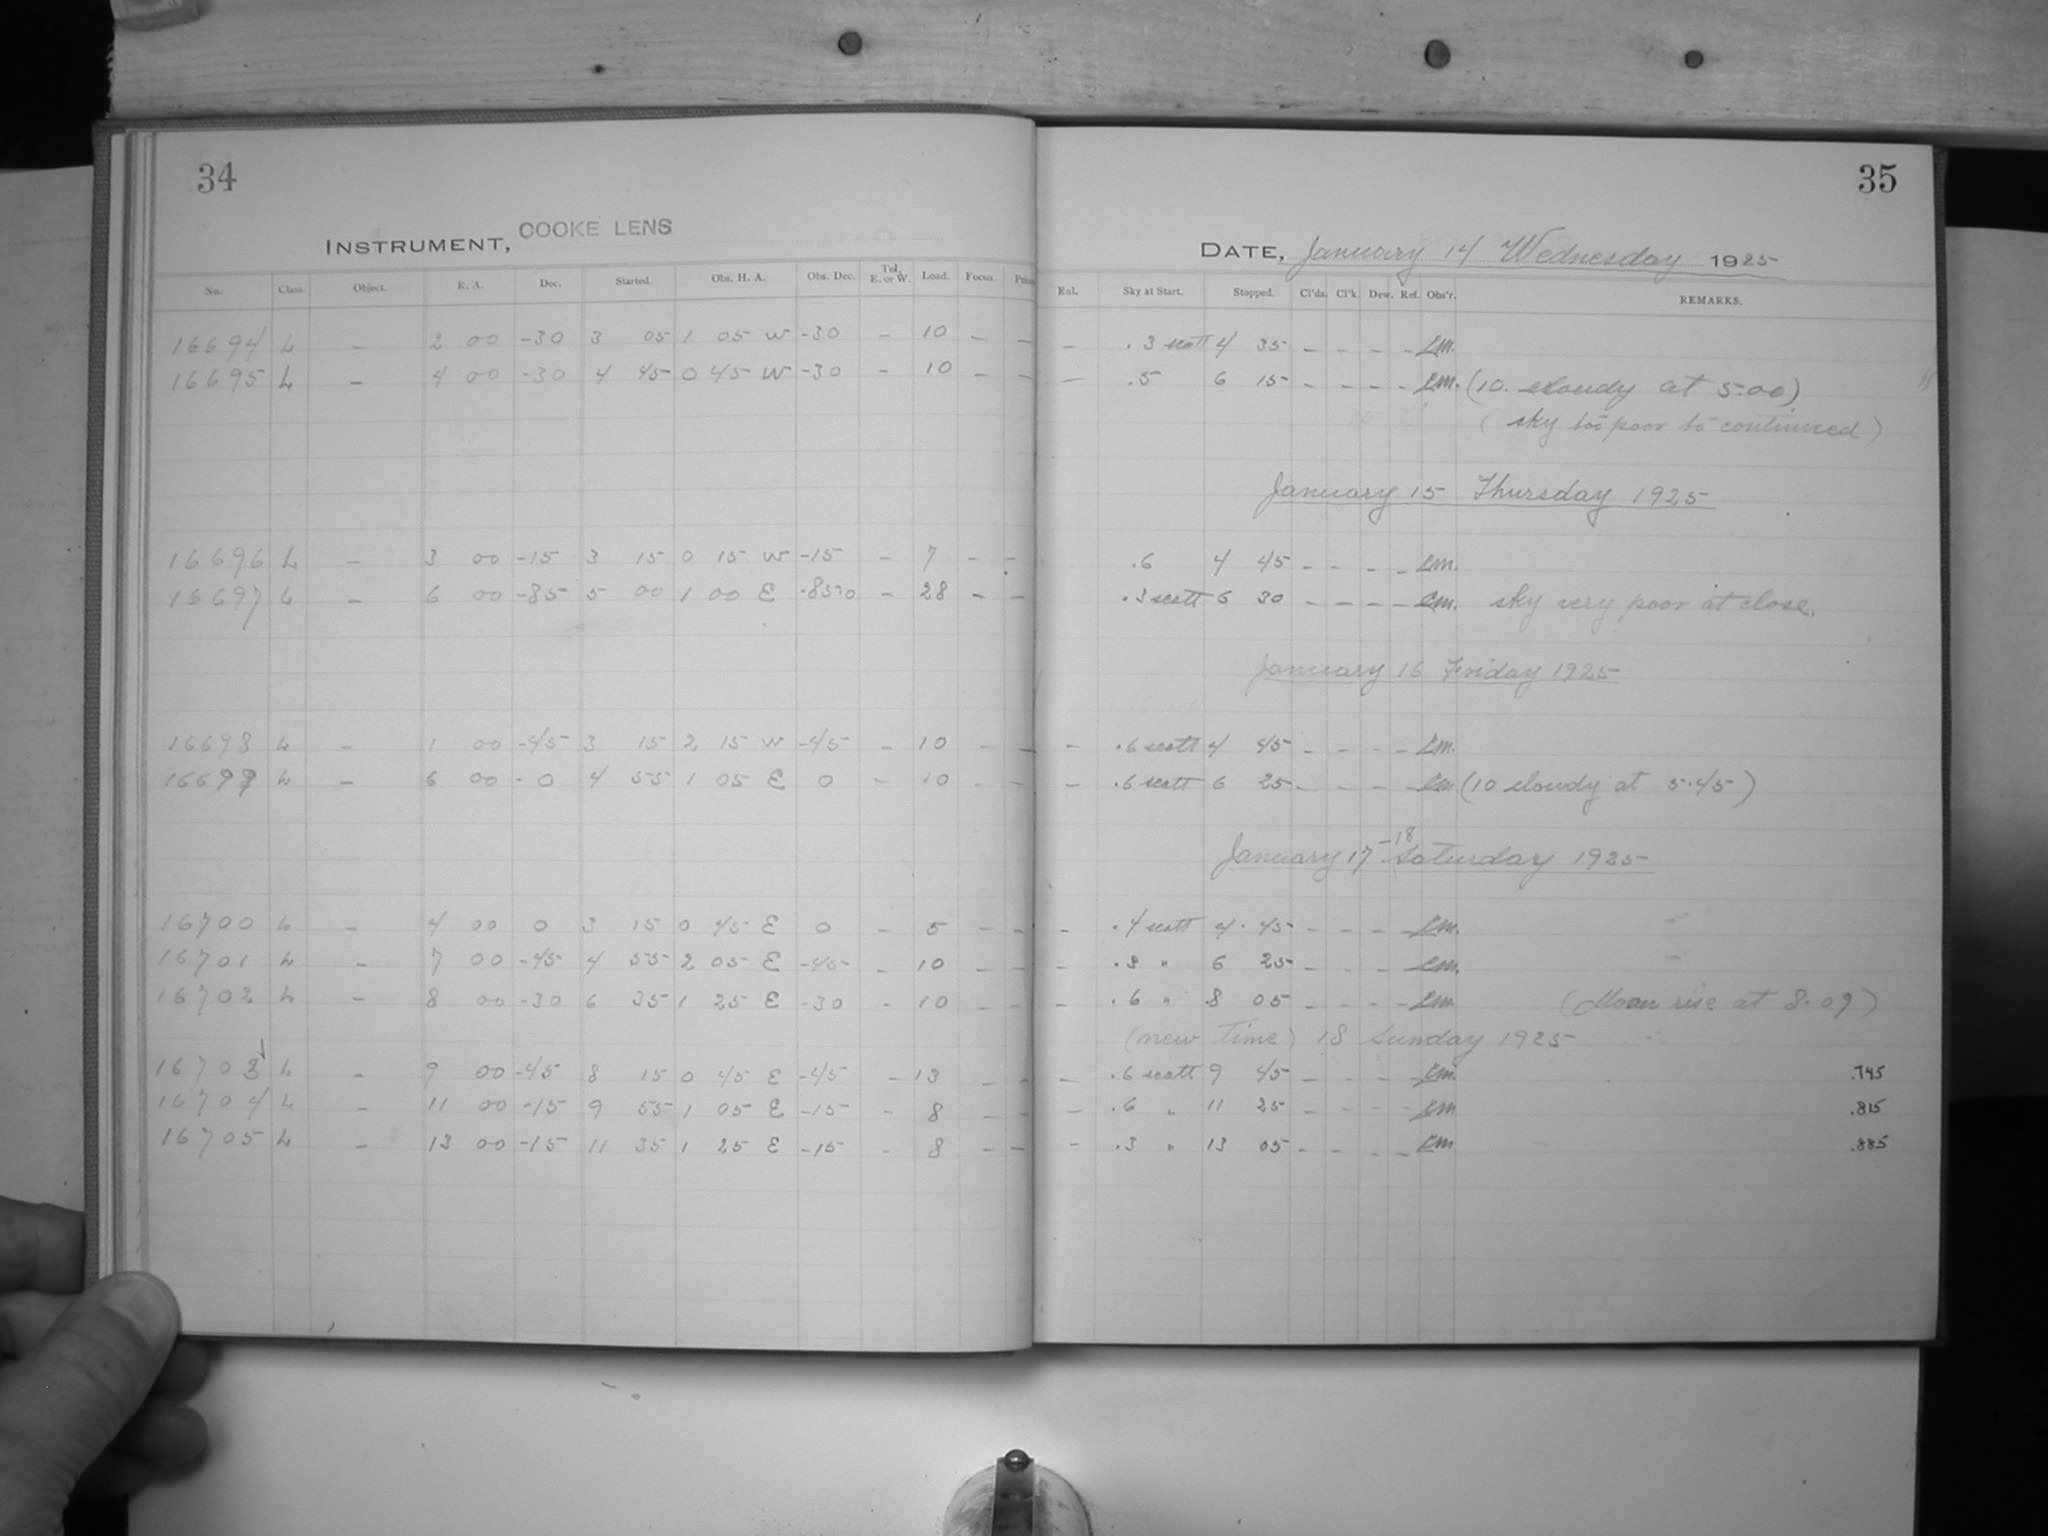 34
35
INSTRUMENT, COOKE LENS
DATE, January 14 Wednesday 1925
No. Class. Object. R. A. Dec. Started. Obs. H. A. Obs. Dec. Tel. E. or W. Load. Focus.
Eal. Sky at Start. Stopped. Cl'ds. Cl'k Dew. Ref. Obs'r. REMARKS.
16694 L - 2 00 -30 3 05 1 05 W -30 - 10 - - - .3 scott 4 35 - - - - Em.
16695 L - 4 00 -30 4 45 0 45 W -30 - 10 - - - .5 6 15 - - - - Em. (10. cloudy at 5.00)
(sky too poor to continued)
January 15 Thursday 1925
16696 L - 3 00 -15 3 15 0 15 W -15 - 7 - - .6 4 45 - - - - Em.
16697 L - 6 00 -85 5 00 1 00 E - 28 - - .3 scott 6 30 - - - - Em. sky very poor at close.
January 16 Friday 1925
16698 L - 1 00 -45 3 15 2 15 W -45 - 10 - - - .6 scott 4 45 - - - - Em.
16699 L - 6 00 - 0 4 55 1 05 E 0 - 10 - - - .6 scott 6 25 - - - - Em (10 cloudy at 5.45)
January 17-18 Saturday 1925
16700 L - 4 00 0 3 15 0 45 E 0 - 5 - - - .4 scott 4. 45 - - - - Em.
16701 L - 7 00 -45 4 55 2 05 E -45 - 10 - - - .3 " 6 25 - - - - Em.
16702 L - 8 00 -30 6 35 1 25 E -30 - 10 - - - .6 " 8 05 - - - - Em. (Moon rise at 8.09)
(new Time) 18 Sunday 1925
16703 L 9 00 -45 8 15 0 45 E -45 - 13 - - - .6 scott 9 45 - - - - Em. .745
16704 L - 11 00 -15 9 55 1 05 E -15 - 8 - - - .6 " 11 25 - - - - Em .815
16705 L - 13 00 -15 11 35 1 25 E -15 - 8 - - - .3 " 13 05 - - - - Em .885